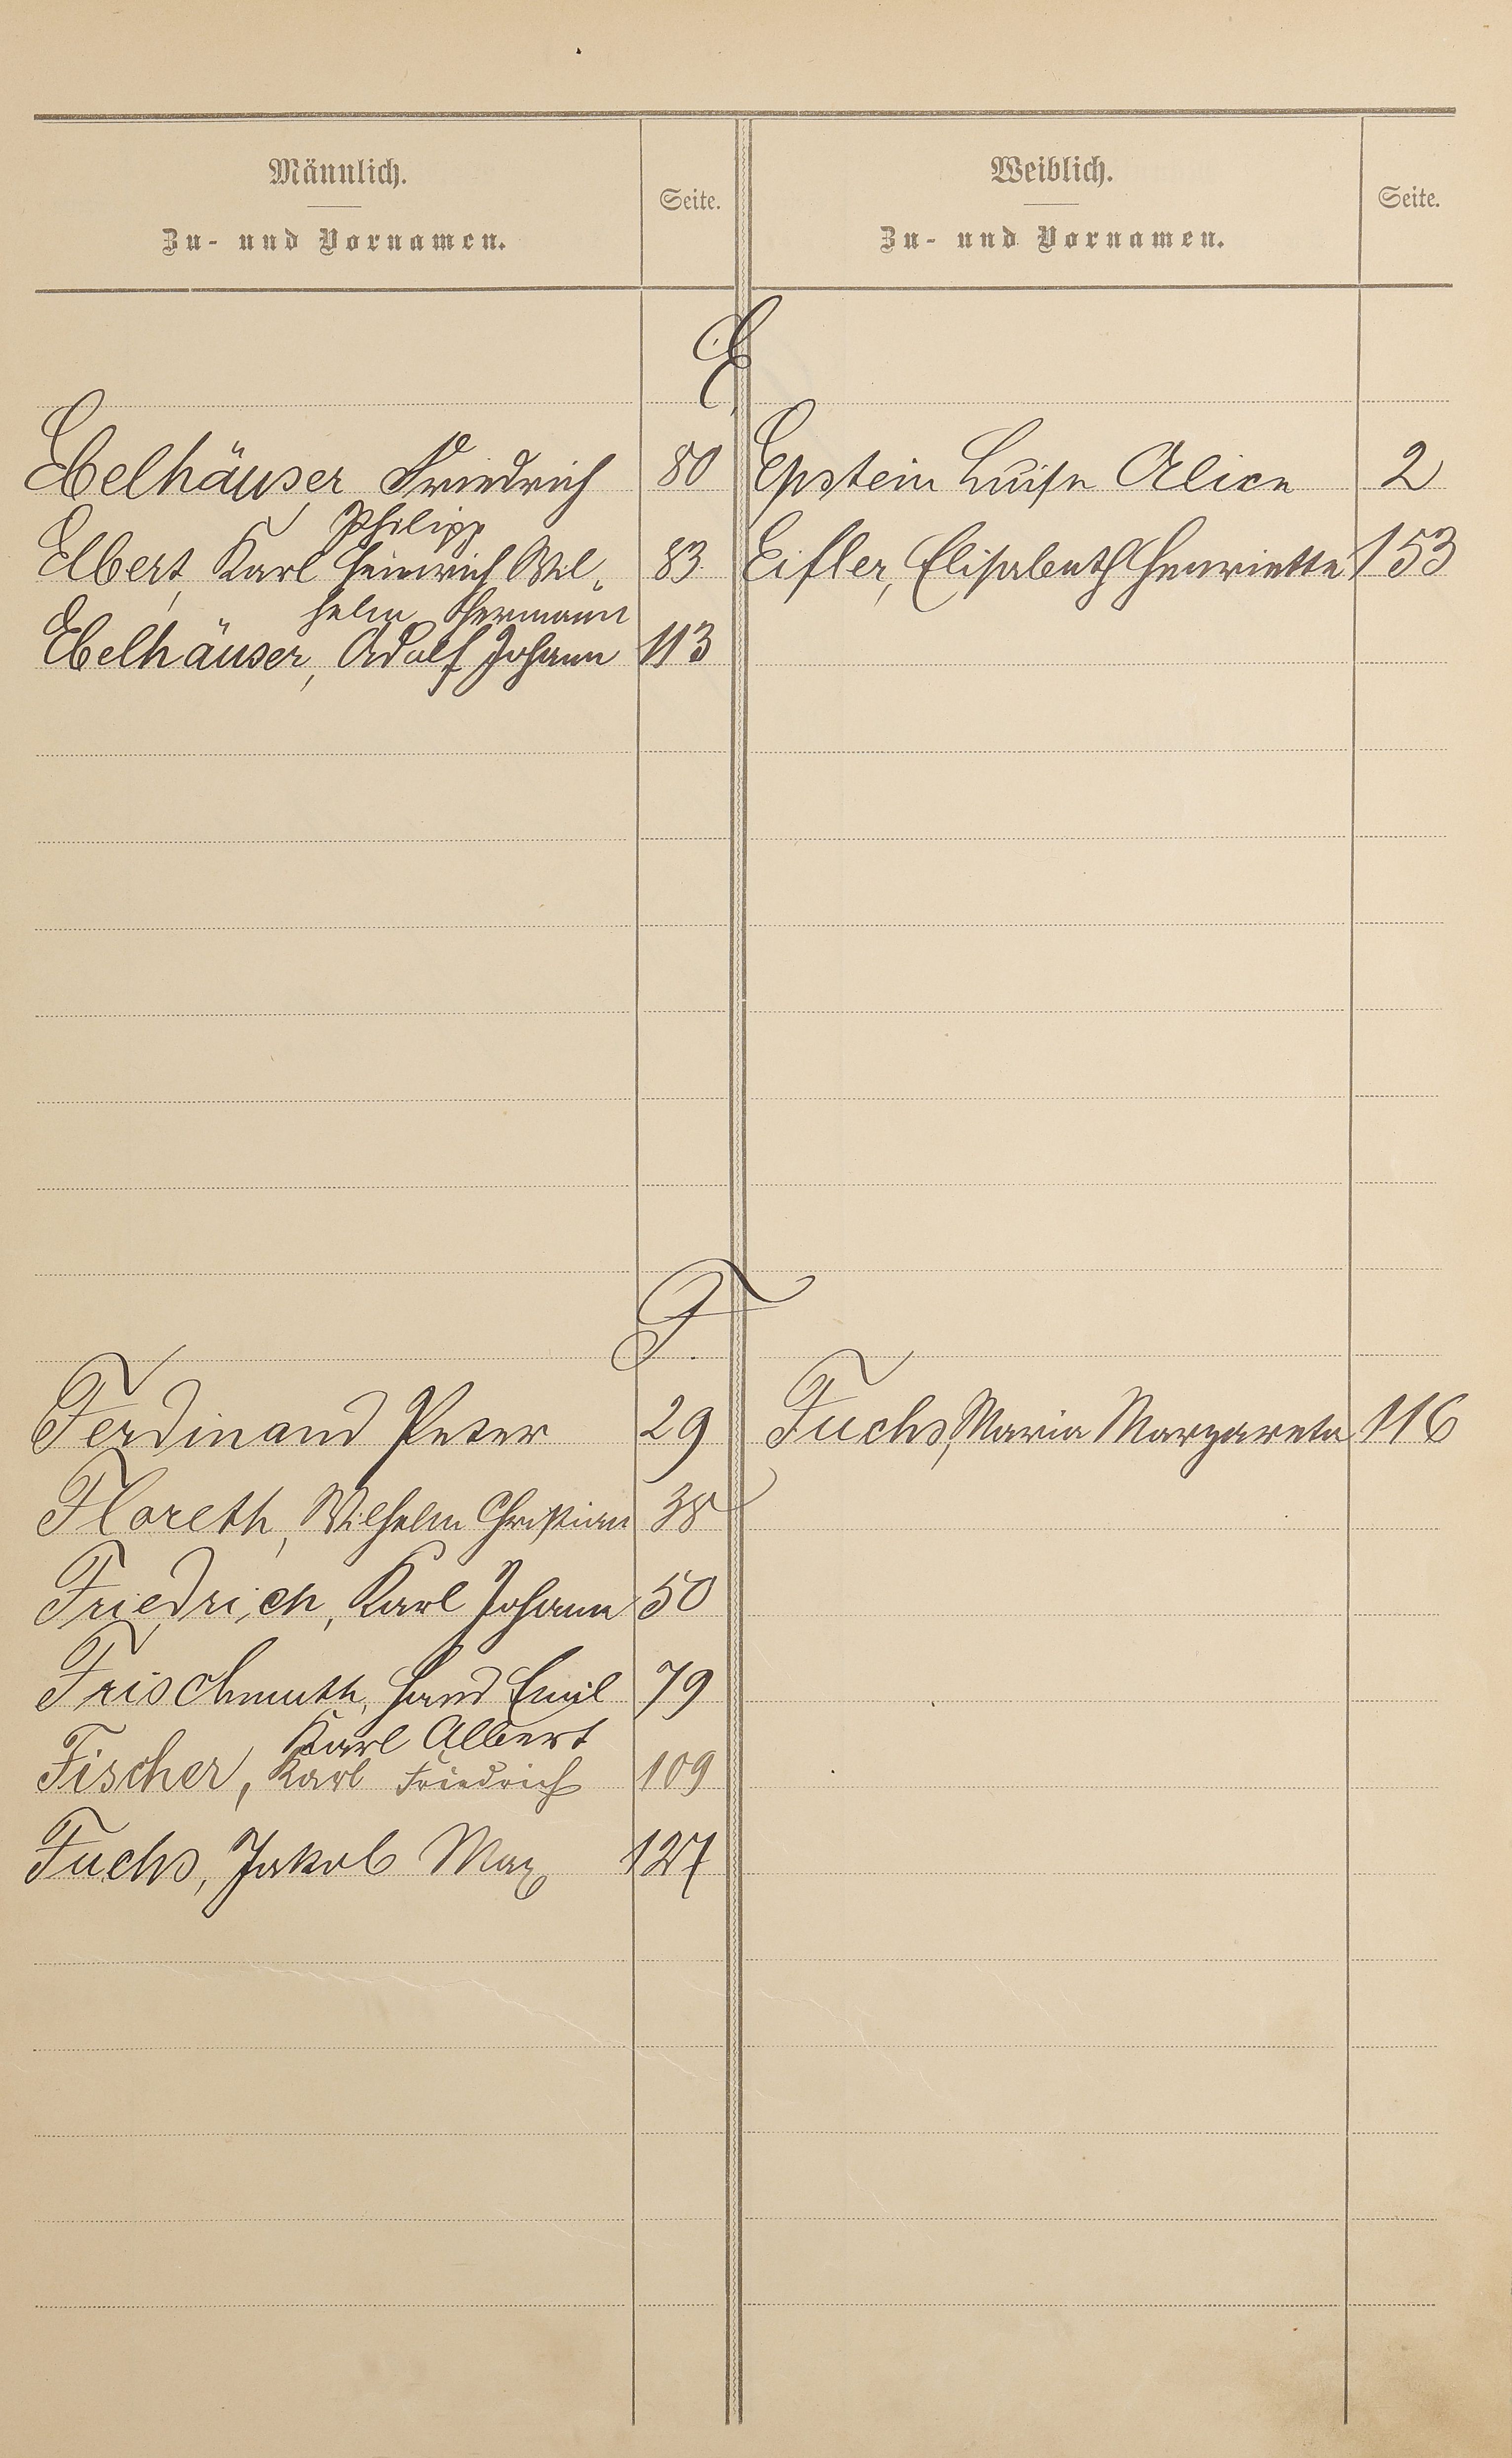 Männlich.
Zu- und Vornamen.
Seite.
Weiblich.
Zu- und Vornamen.
Seite.
E
Ebelhäuser Friedrich 80 Epstein Luise Alice 2
Philipp
Elbert, Karl Heinrich Wil- 83 Eifler, Elisabeth Henriette 153
helm Hermann
Ebelhäuser, Adolf Johann 113
F.
Ferdinand Peter 29 Fuchs, Maria Margareta 116
Floreth, Wilhelm Christian 38
Friedrich, Karl Johann 50
Frischmuth, Hans Emil 79
Karl Albert
Fischer, Karl Friedrich 109
Fuchs, Jakob Max 127